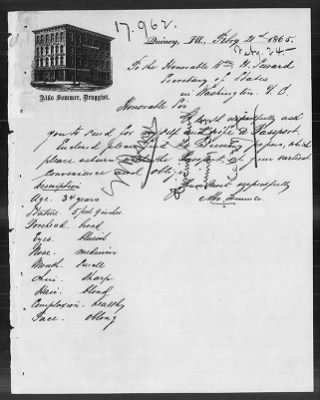 17,962.
Quincy, Ill., Feby 21st 1865.
Feby. 24
To the Honorable Wm. H. Seward
Secretary of States
in Washington D. C.
Aldo Sommer, Druggist.
Honorable Sir
I would respectfully ask
you to send for my self and wife a Passport.
Enclosed please find the papers, which
please return with the passport, at your earliest
convenience and oblige
Yours most respectfully
Aldo Sommer
description
Age. 34 years
Stature. 5 feet 9 inches
Forehead. broad
Eyes.
Nose. medium
Mouth. Small
Chin. Sharp
Hair. blond
Complexion. healthy
Face. oblong